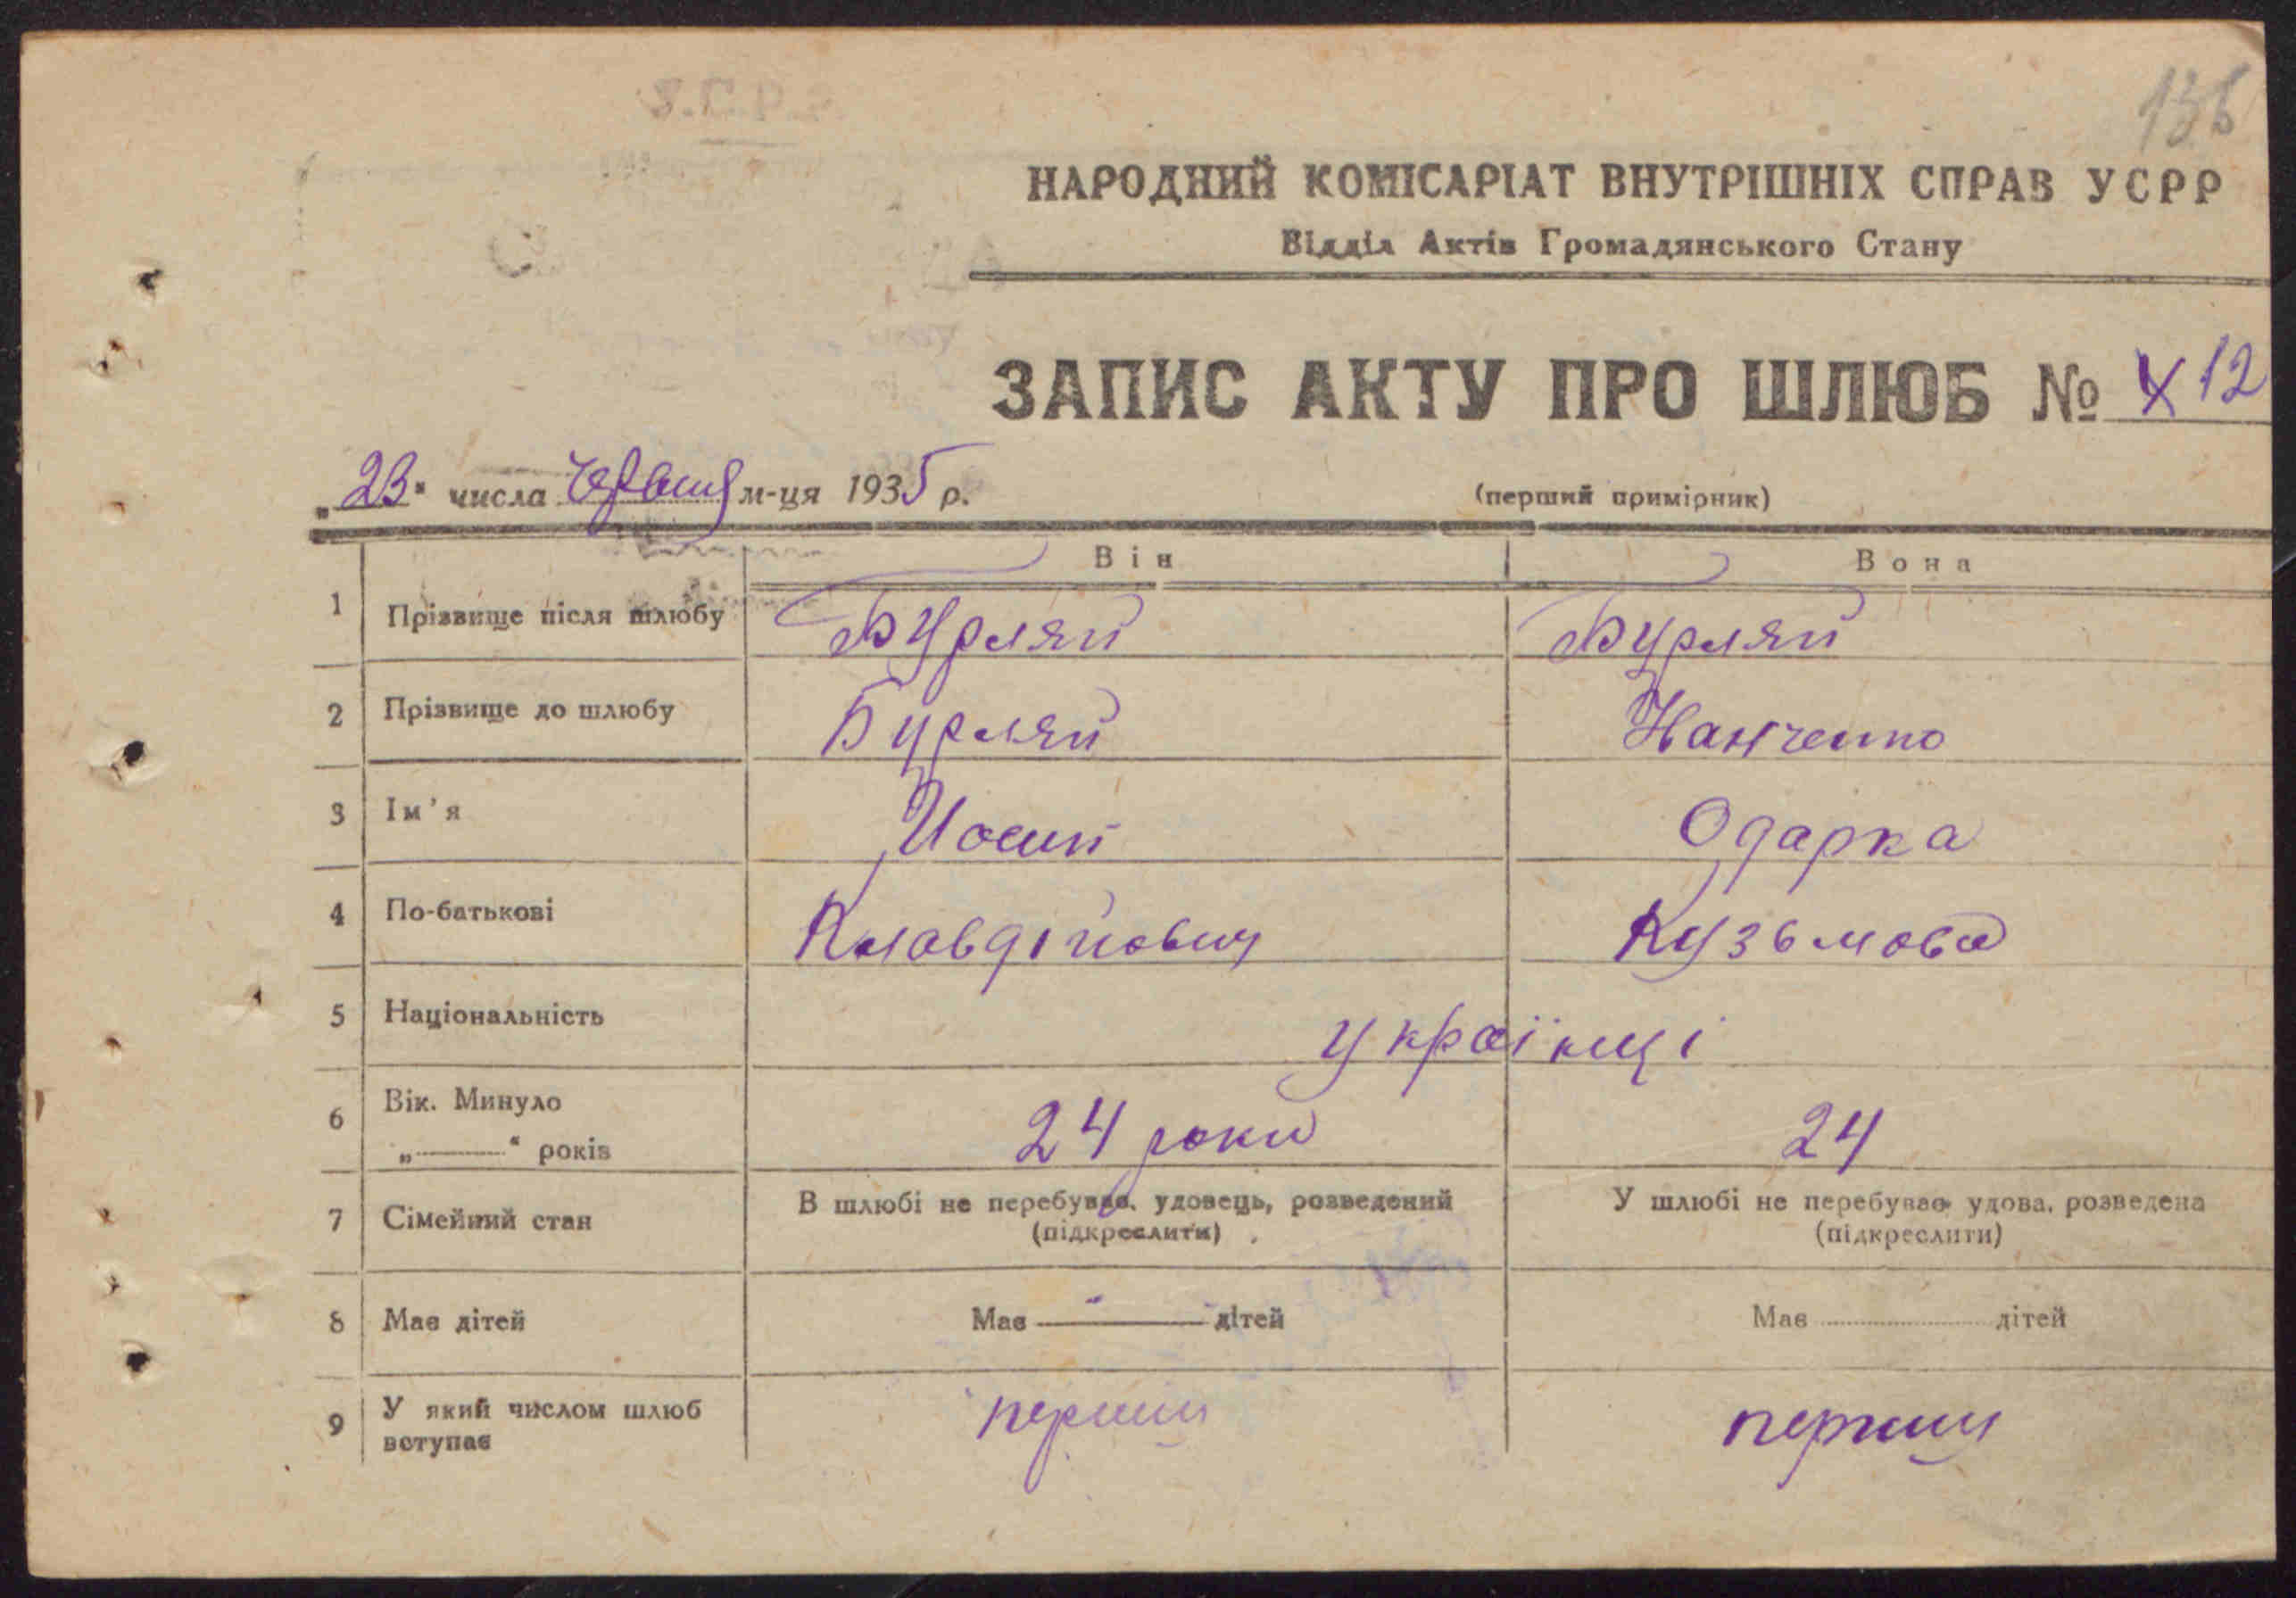 НАРОДНИЙ КОМІСАРІАТ ВНУТРІШНІХ СПРАВ УСРР
Відділ Актів Громадянського Стану
ЗАПИС АКТУ ПРО ШЛЮБ № 12
„23" числа червня м-ця 1935 р.
(перший примірник)
Він Вона
1 Прізвище після шлюбу Бурляй Бурляй
2 Прізвище до шлюбу Бурляй
3 Ім'я Йосип Одарка
4 По-батькові Клавдійович Кузьмова
5 Національність Українці
6 Вік. Минуло 24 роки 24
„ " років
7 Сімейний стан В шлюбі не перебував, удовець, розведений У шлюбі не перебуває удова, розведена
(підкреслити) (підкреслити)
8 Має дітей Має — дітей Має дітей
9 У який числом шлюб перший перший
вступає